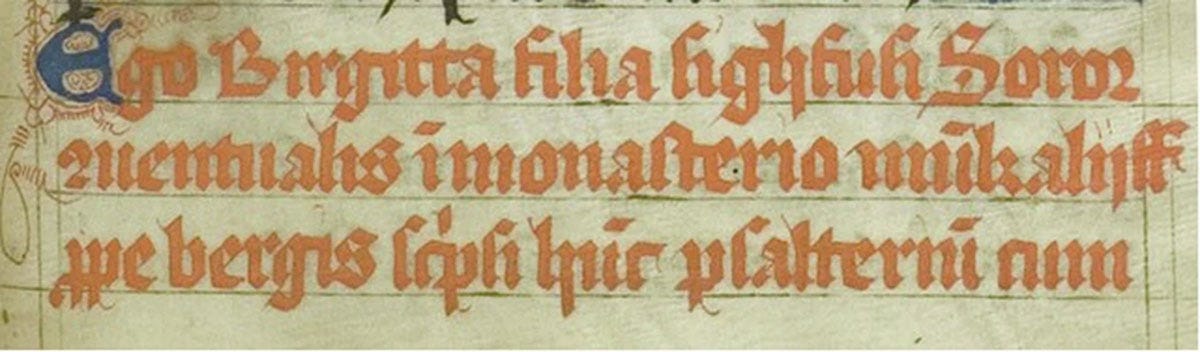 Ego Birgitta filia sighfusi Soror
ꝯuentualis ī monasterio mūkalijff
ꝓpe bergis sc͛psi hūc psalteriū cum